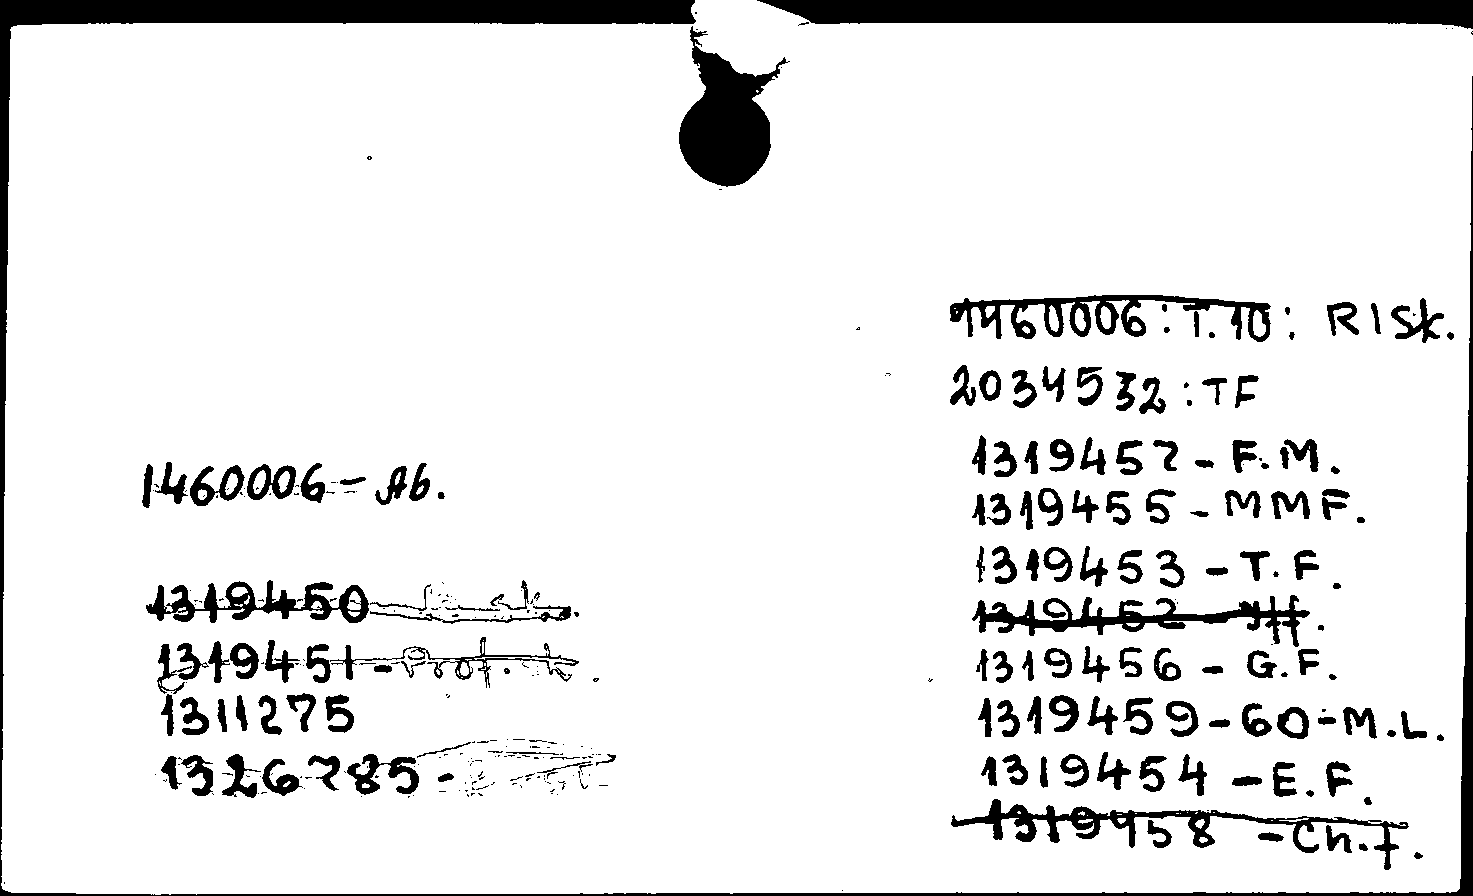 1460006 - Ab.
1319450
1319451 - Prof.
1311275
1326785 -
1460006: T. 10: RISk.
2034532: TF
1319457 - F.M.
1319455 - MMF.
1319453 - T.F.
1319452 -
1319456 - G.F.
1319459 - 60 - M.L.
1319454 - E.F.
1319458 - Ch.f.